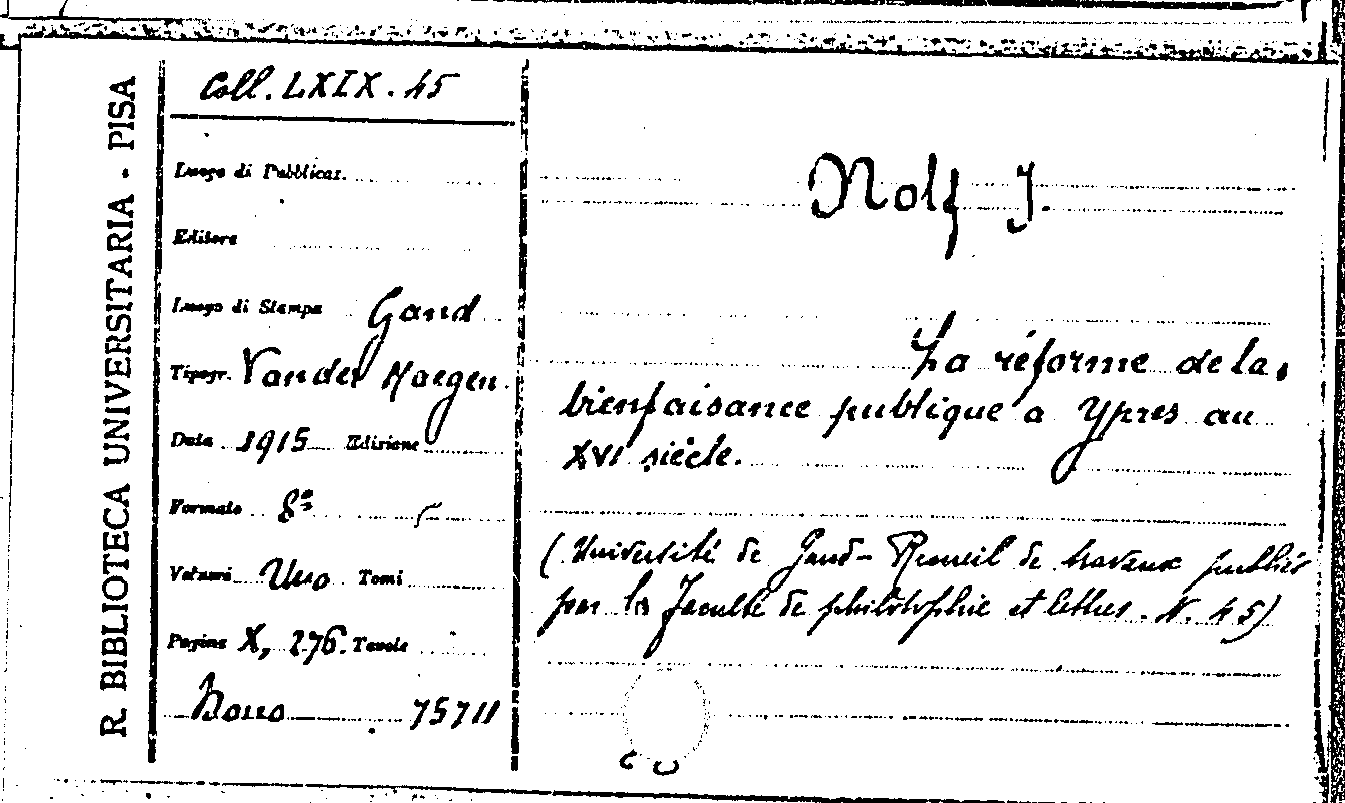 R. BIBLIOTECA UNIVERSITARIA - PISA
Coll. LXIX. 45
Luogo di Pubblicaz.
Editore
Luogo di Stampa Gand
Tipogr. Vander Haegen
Data 1915 Edizione
Formato 8º
Volumi Uno Tomi
Pagine X, 276. Tavole
Dono 75711
Nolf J.
La réforme de la
bienfaisance publique a Ypres au
XVI siècle.
(Université de Gand - Recueil de travaux publiés
par la Faculté de philosophie et lettres. N. 45)